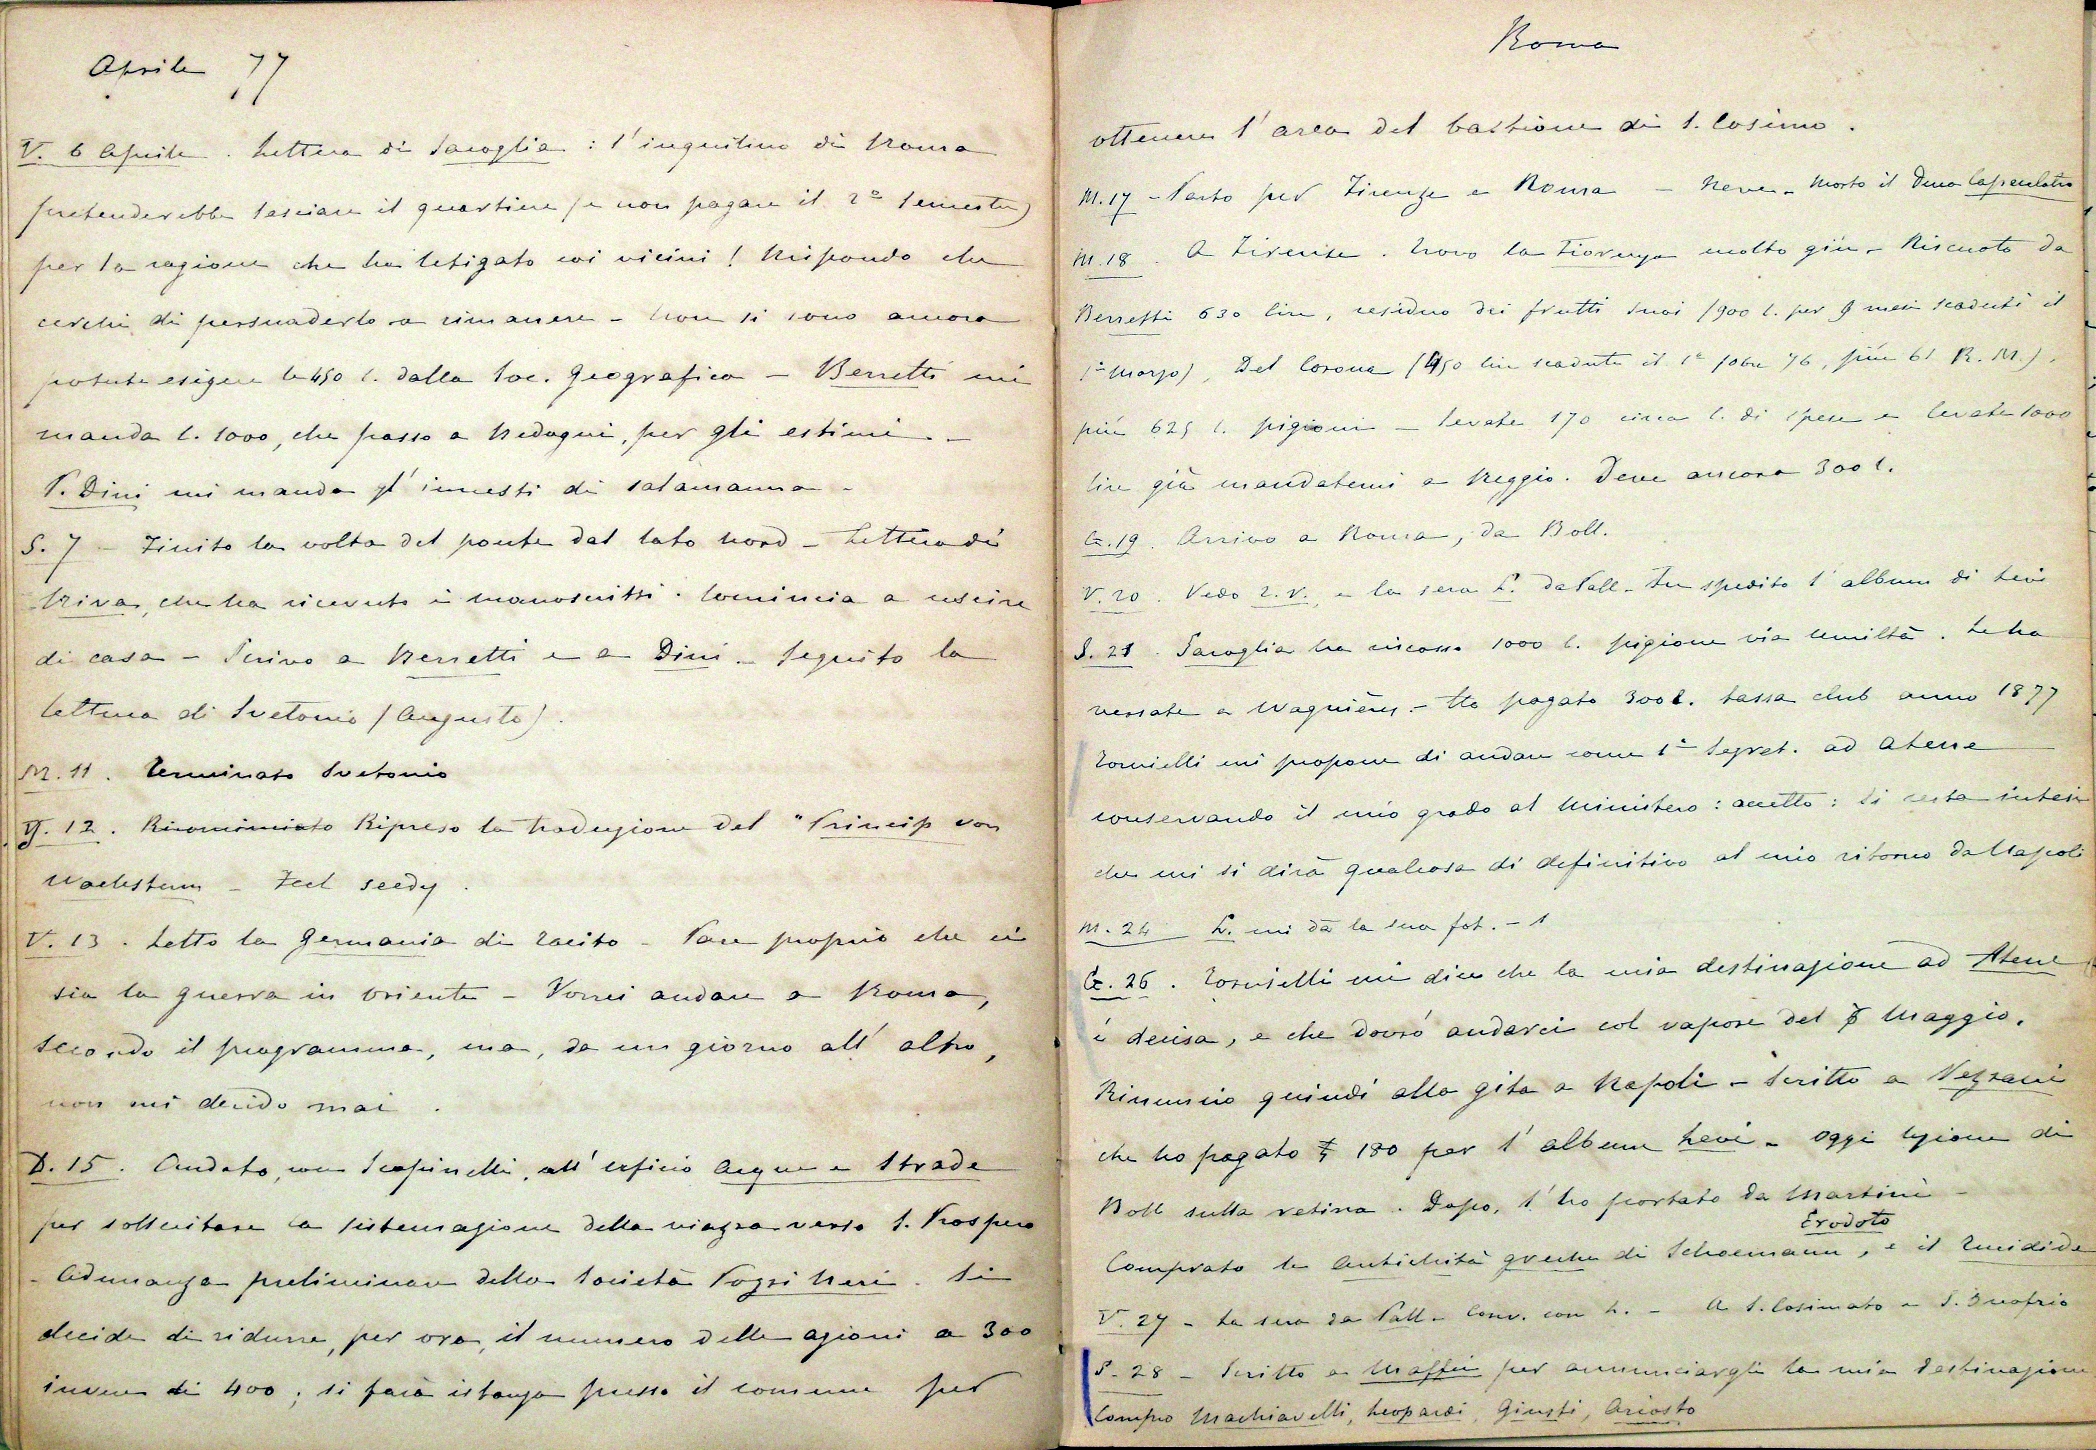 Aprile 77
V. 6 Aprile. Lettera di Saroglia: l'inquilino di Roma
pretenderebbe lasciare il quartiere (e non pagare il 2º semestre)
per la ragione che ha letigato coi vicini! Rispondo che
cerchi di persuaderlo a rimanere - Non si sono ancora
potute esigere le 450 l. dalla Soc. Geografica - Berretti mi
manda l. 1000, che passo a Redaqui, per gli estimi. -
P. Dini mi manda gl'innesti di salamanna -
S. 7 - Finito la volta del ponte dal lato nord - Lettera di
Riva, che ha ricevuto i manoscritti. Comincia a uscire
di casa - Scrivo a Berretti e a Dini. Seguito la
lettura di Svetonio (Augusto).
M. 11. Terminato Svetonio
G. 12. Ricominciato Ripreso la traduzione del "Princip von
Wachstum - Feel seedy.
V. 13. Letto la Germania di Tacito - Pare proprio che ci
sia la guerra in oriente - Vorrei andare a Roma,
secondo il programma, ma, da un giorno all'altro,
non mi decido mai.
D. 15. Andato, con Scapinelli, all'ufficio Acque e Strade
per sollecitare la sistemazione della viazza verso S. Prospero
- Adunanza preliminare della Società Pozzi Neri. Si
decide di ridurre, per ora, il numero delle azioni a 300
invece di 400; si farà istanza presso il comune per
Roma
ottenere l'area del bastione di S. Cosimo.
M. 17 - Parto per Firenze e Roma - Neve - Morto il Duca
M. 18. A Firenze. Trovo la Fiorenza molto giù - Riscuoto da
Berretti 630 lire, residuo dei frutti suoi (900 l. per 9 mesi scaduti il
1º Marzo), Del Corona (450 lire scadute il 1º 76, più 61 R. M.),
più 625 l. pigioni - levate 170 circa l. di spese e levate 1000
lire già mandatemi a Reggio. Deve ancora 300 l.
G. 19. Arrivo a Roma, da Boll.
V. 20. Vedo e la sera L. da Pall - Fu spedito l'album di Levi
S. 21. Saroglia ha riscosso 1000 l. pigione via umiltà. Le ha
versate a Wagnière. - Ho pagato 300 l. tassa club anno 1877
Tornielli mi propone di andare come 1º Segret. ad Atene
conservando il mio grado al Ministero: accetto: si resta intesi
che mi si dirà qualcosa di definitivo al mio ritorno da Napoli
M. 24 L. mi dà la sua fot. - 1
G. 26. Tornielli mi dice che la mia destinazione ad Atene
è decisa, e che dovrò andarci col vapore del Maggio.
Rinuncio quindi alla gita a Napoli - Scritto a Vezzani
che ho pagato £ 180 per l'album Levi - Oggi lezione di
Boll sulla retina. Dopo, l'ho portato da Martini -
Erodoto
Comprato le Antichità greche di Schoemann, e il Tucidide
V. 27 - La sera da Pall - Conv. con L. - A S. Cosimato e S. Onofrio
S. 28 - Scritto a Maffei per annunciargli la mia destinazione
Compro Machiavelli, Leopardi, Giusti, Ariosto